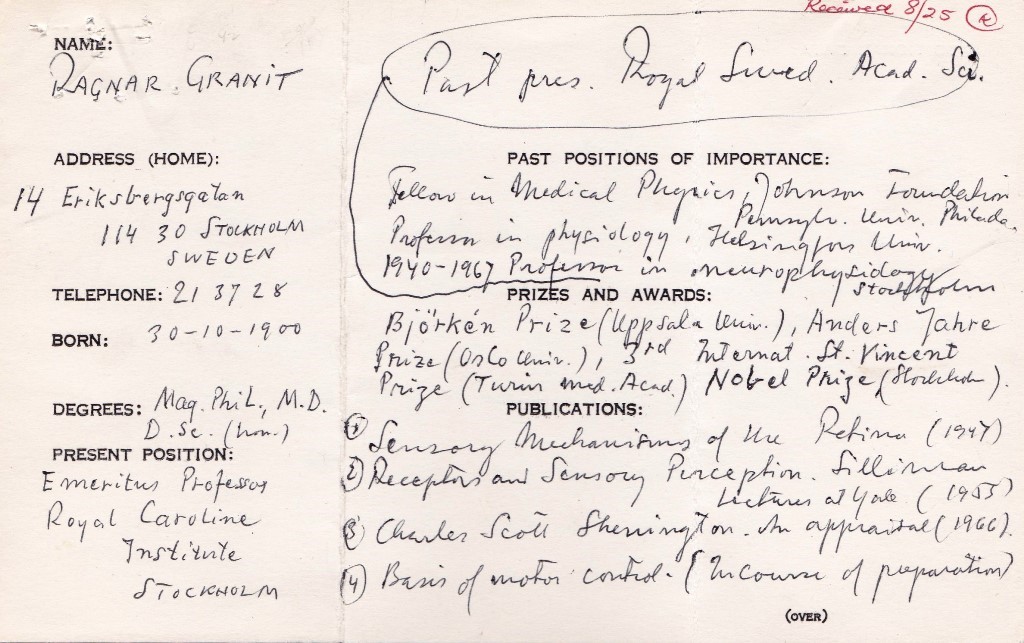 Received 8/25 R
NAME:
RAGNAR GRANIT
ADDRESS (HOME):
14 Eriksbergsgatan
114 30 STOCKHOLM
SWEDEN
TELEPHONE: 21 37 28
BORN: 30-10-1900
DEGREES: Mag. Phil., M.D.
D. Sc. (hon.)
PRESENT POSITION:
Emeritus Professor
Royal Caroline
Institute
STOCKHOLM
Past pres. Royal Swed. Acad. Sci.
PAST POSITIONS OF IMPORTANCE:
Fellow in Medical Physics, Johnson Foundation
Pennsylv. Univ. Philada.
Professor in physiology, Helsingfors Univ.
1940-1967 Professor in neurophysiology
Stockholm
PRIZES AND AWARDS:
Björkén Prize (Uppsala Univ.), Anders Jahre
Prize (Oslo Univ.), 3rd Internat. St. Vincent
Prize (Turin med. Acad) Nobel Prize (Stockholm).
PUBLICATIONS:
1) Sensory Mechanisms of the Retina (1947)
2) Receptors and Sensory Perception. Silliman
Lectures at Yale (1955)
3) Charles Scott Sherrington. An appraisal (1966).
4) Basis of motor control. (In course of preparation)
(OVER)